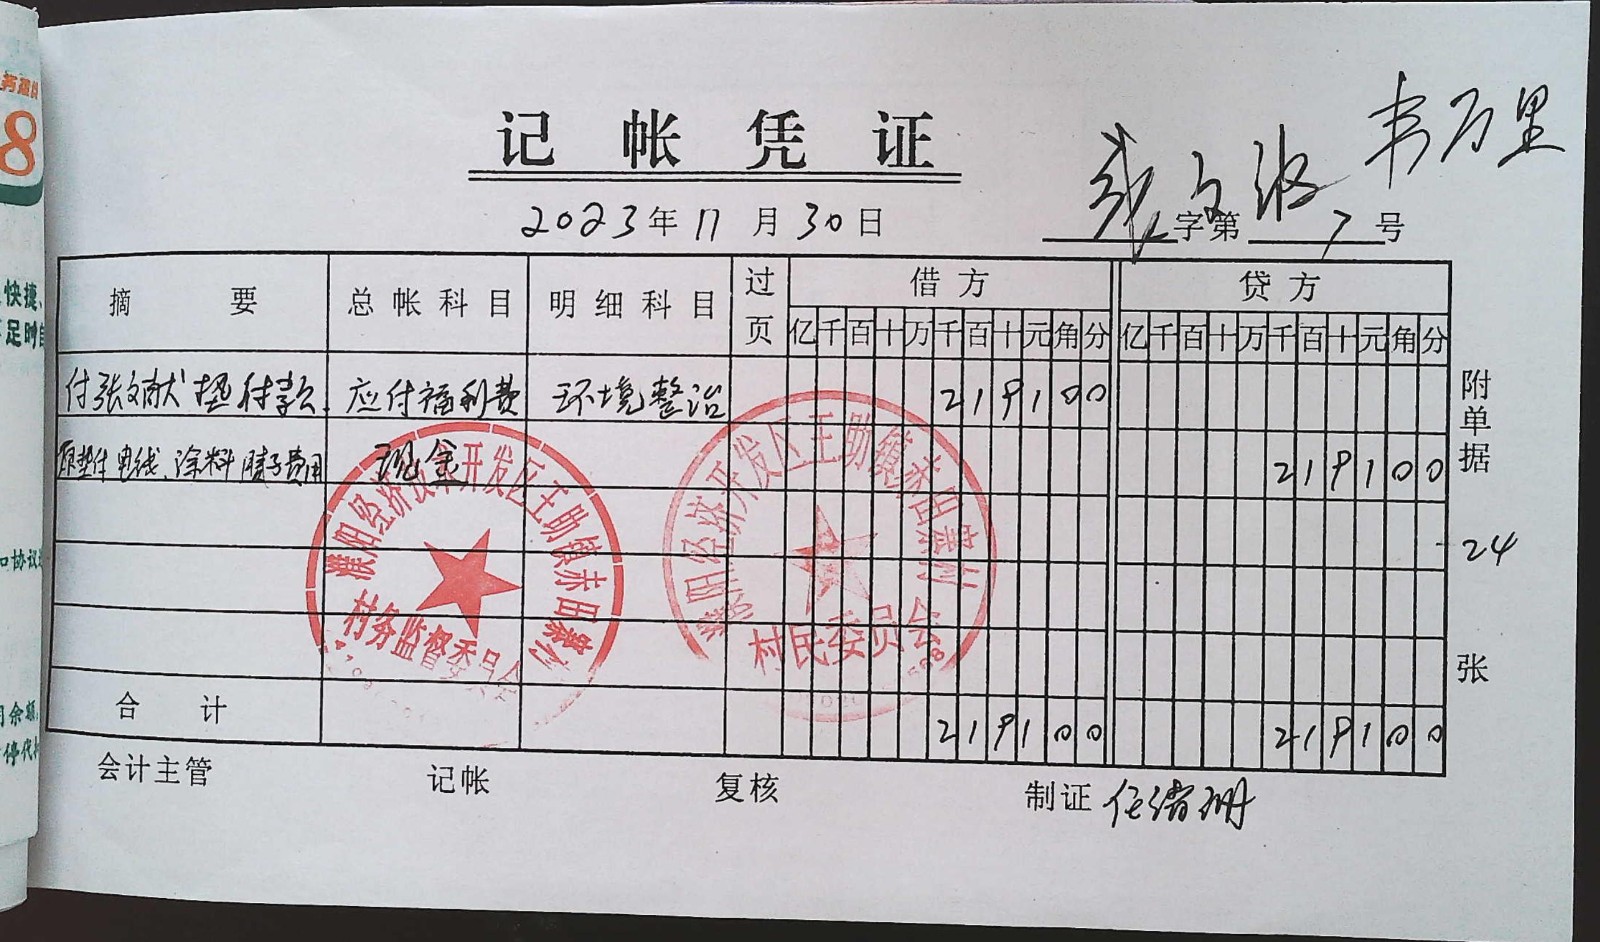 8
快捷、
足时
记帐凭证
韦万里
2023年11月30日
文波
字第7号
摘要 总帐科目 明细科目 过页 借方 贷方
亿千百十万千百十元角分 亿千百十万千百十元角分
付张文献垫付款 应付福利费 环境整治 219100
原垫付电线、涂料腻子费用 现金 219100
合计 219100 219100
附单据 24 张
濮阳经济技术开发区王助镇赤田寨村
村务监督委员会
濮阳经济开发区王助镇赤田寨村
村民委员会
和协议
余额
停代
会计主管 记帐 复核 制证 任绪册